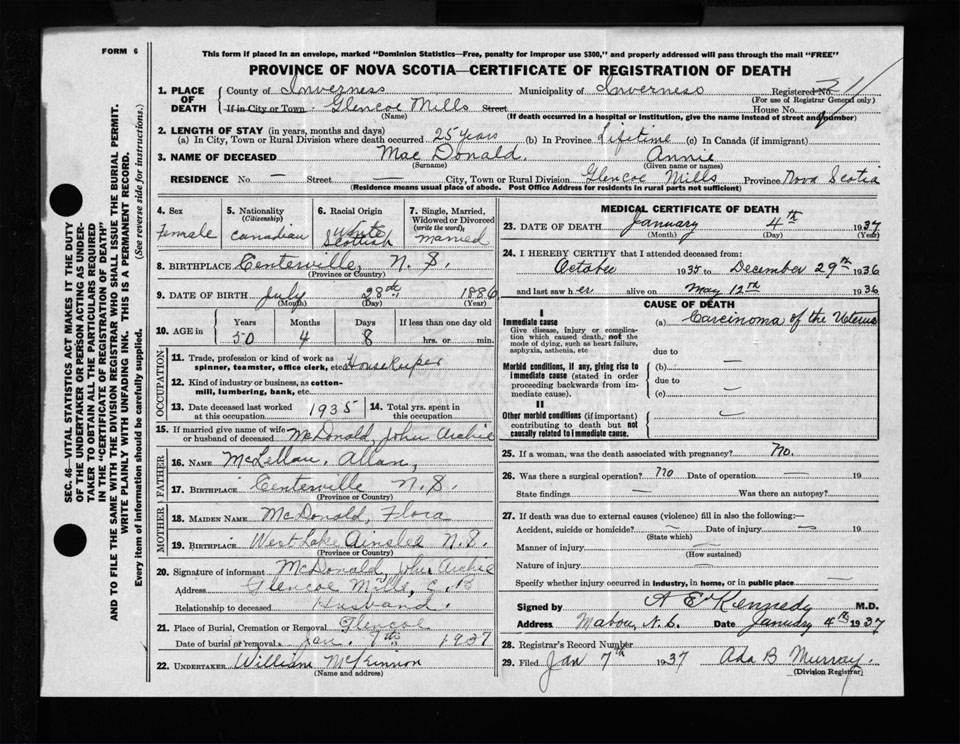 FORM 6
This form if placed in an envelope, marked "Dominion Statistics—Free, penalty for improper use $300," and properly addressed will pass through the mail "FREE"
PROVINCE OF NOVA SCOTIA—CERTIFICATE OF REGISTRATION OF DEATH
1. PLACE OF DEATH County of Inverness Municipality of Inverness Registered No. 71
(For use of Registrar General only)
If in City or Town Glencoe Mills Street House No.
(Name) (If death occurred in a hospital or institution, give the name instead of street and number)
2. LENGTH OF STAY (in years, months and days)
(a) In City, Town or Rural Division where death occurred 25 years (b) In Province Lifetime (c) In Canada (if immigrant)
3. NAME OF DECEASED Mac Donald, Annie
(Surname) (Given name or names)
RESIDENCE No. — Street — City, Town or Rural Division Glencoe Mills Province Nova Scotia
(Residence means usual place of abode. Post Office Address for residents in rural parts not sufficient)
SEC. 46—VITAL STATISTICS ACT MAKES IT THE DUTY
OF THE UNDERTAKER OR PERSON ACTING AS UNDER-
TAKER TO OBTAIN ALL THE PARTICULARS REQUIRED
IN THE "CERTIFICATE OF REGISTRATION OF DEATH"
AND TO FILE THE SAME WITH THE DIVISION REGISTRAR WHO SHALL ISSUE THE BURIAL PERMIT.
WRITE PLAINLY WITH UNFADING INK. THIS IS A PERMANENT RECORD.
Every item of information should be carefully supplied. (See reverse side for instructions.)
4. Sex
female
5. Nationality
(Citizenship)
Canadian
6. Racial Origin
White
Scottish
7. Single, Married,
Widowed or Divorced
(write the word)
married
8. BIRTHPLACE Centerville, N. S.
(Province or Country)
9. DATE OF BIRTH July 28th 1886
(Month) (Day) (Year)
10. AGE in Years Months Days If less than one day old
50 4 8 hrs. or min.
OCCUPATION
11. Trade, profession or kind of work as
spinner, teamster, office clerk, etc. Housekeeper
12. Kind of industry or business, as cotton-
mill, lumbering, bank, etc.
13. Date deceased last worked
at this occupation 1935
14. Total yrs. spent in
this occupation
15. If married give name of wife
or husband of deceased McDonald, John Archie
FATHER
16. NAME McLellan, Allan,
17. BIRTHPLACE Centerville N. S.
(Province or Country)
MOTHER
18. MAIDEN NAME McDonald, Flora
19. BIRTHPLACE West Lake Ainslee N. S.
(Province or Country)
20. Signature of informant McDonald, John Archie
Address Glencoe Mills, C. B
Relationship to deceased Husband.
21. Place of Burial, Cremation or Removal Glencoe
Date of burial or removal Jan. 7th 1937
22. UNDERTAKER William McKinnon
(Name and address)
MEDICAL CERTIFICATE OF DEATH
23. DATE OF DEATH January 4th 1937
(Month) (Day) (Year)
24. I HEREBY CERTIFY that I attended deceased from:
October 1935 to December 29th 1936
and last saw her alive on May 12th 1936
CAUSE OF DEATH
I
Immediate cause
Give disease, injury or complica-
tion which caused death, not the
mode of dying, such as heart failure,
asphyxia, asthenia, etc
(a) Carcinoma of the Uterus
due to
Morbid conditions, if any, giving rise to
immediate cause (stated in order
proceeding backwards from im-
mediate cause).
(b) —
due to
(c) —
II
Other morbid conditions (if important)
contributing to death but not
causally related to immediate cause.
—
25. If a woman, was the death associated with pregnancy? No.
26. Was there a surgical operation? No Date of operation — 19
State findings — Was there an autopsy?
27. If death was due to external causes (violence) fill in also the following:—
Accident, suicide or homicide? — Date of injury — 19
(State which)
Manner of injury —
(How sustained)
Nature of injury —
Specify whether injury occurred in industry, in home, or in public place —
Signed by A E Kennedy M.D.
Address Mabou, N.S. Date January 4th 1937
28. Registrar's Record Number
29. Filed Jan 7th 1937 Ada B Murray.
(Division Registrar)